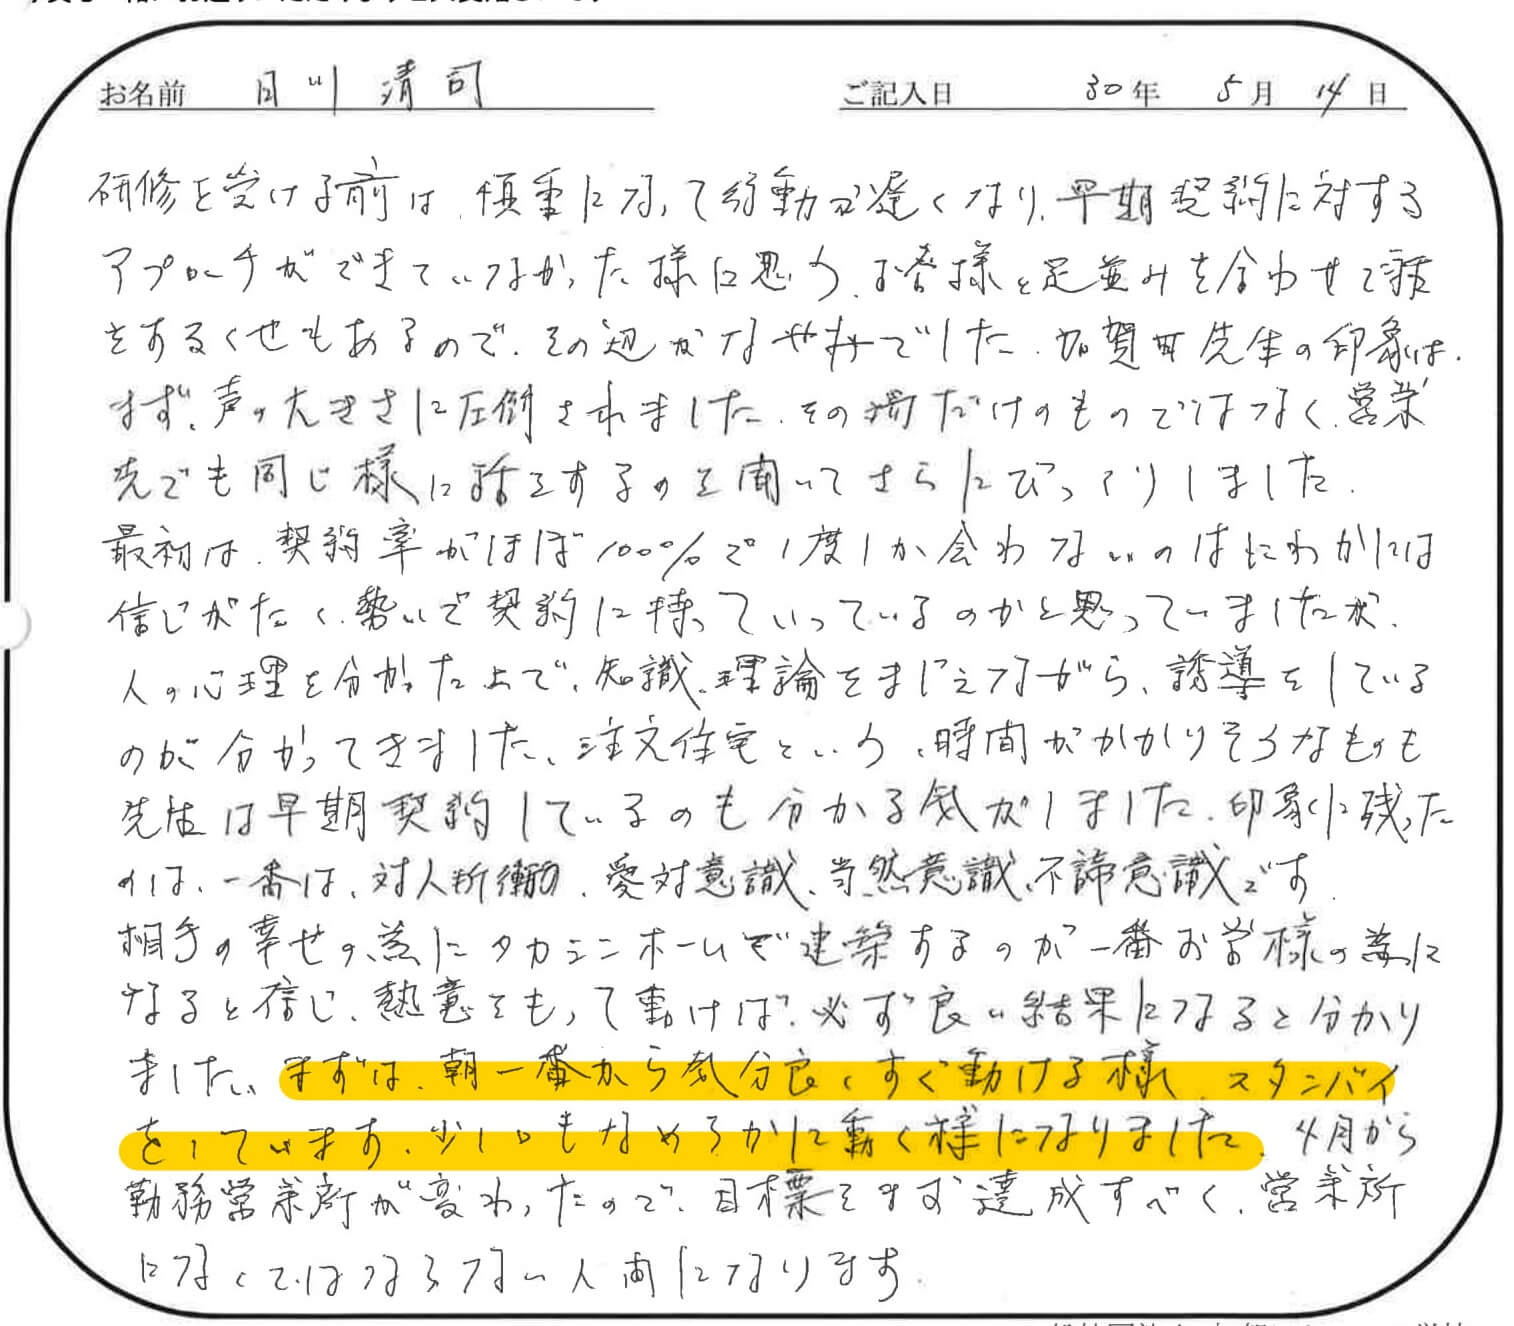 お名前 日川 清司 ご記入日 30年 5月 14日
研修を受ける前は、慎重になって行動が遅くなり、早期契約に対する
アプローチができていなかった様に思う、お客様と足並みを合わせて話
をするくせもあるので、その辺がなやみでした、加賀田先生の印象は、
まず、声の大きさに圧倒されました、その場だけのものではなく、営業
先でも同じ様に話をするのを聞いてさらにびっくりしました、
最初は、契約率がほぼ100%で1度しか会わないのはにわかには
信じがたく、勢いで契約に持っていっているのかと思っていましたが、
人の心理を分かった上で、知識、理論をまじえながら、誘導をしている
のが分かってきました、注文住宅という、時間がかかりそうなものも
先生は早期契約しているのも分かる気がしました、印象に残った
のは、一番は、対人折衝の、愛対意識、当然意識、不諦意識です、
相手の幸せの為にタカシンホームで建築するのが一番お客様の為に
なると信じ、熱意をもって動けば、必ず良い結果になると分かり
ました、まずは、朝一番から気分良くすぐ動ける様、スタンバイ
をしています、少しはなめらかに動く様になりました、4月から
勤務営業所が変わったので、目標をまず達成すべく、営業所
になくてはならない人間になります、